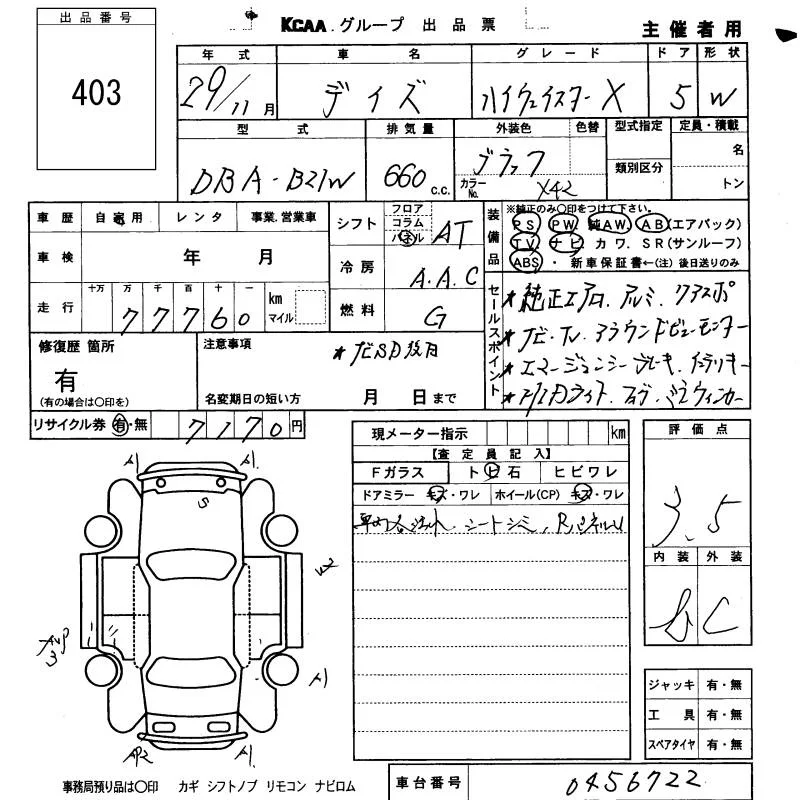 出品番号
403
KCAA.グループ 出品票
主催者用
年式 車名 グレード ドア 形状
29/11月 デイズ ハイウェイスターX 5 W
型式 排気量 外装色 色替 型式指定 定員・積載
DBA-B21W 660c.c. ブラック 名
カラーNo. X42 類別区分 トン
車歴 自家用 レンタ 事業.営業車
車検 年 月
走行 十万 万 千 百 十 一
77760 km マイル
シフト フロア コラム パネル AT
冷房 A.A.C
燃料 G
装備品
※純正のみ○印をつけて下さい。
PS PW. 純AW. AB(エアバック)
TV ナビ カワ. SR(サンルーフ)
ABS・新車保証書←(注)後日送りのみ
セールスポイント
★純正エアロ.アルミ.
★ナビ.TV.アラウンドビューモニター
★エマージェンシーブレーキ.
修復歴 箇所
有
(有の場合は○印を)
注意事項
名変期日の短い方 月 日まで
リサイクル券 有・無 7170円
現メーター指示 km
【査定員記入】
Fガラス トビ石 ヒビワレ
ドアミラー キズ・ワレ ホイール(CP) キズ・ワレ
シートシミ.
評価点
3.5
内装 外装
C
A1 A1
S
W2
3
A1
AP2 A1
ジャッキ 有・無
工具 有・無
スペアタイヤ 有・無
事務局預り品は○印 カギ シフトノブ リモコン ナビロム
車台番号 0456722